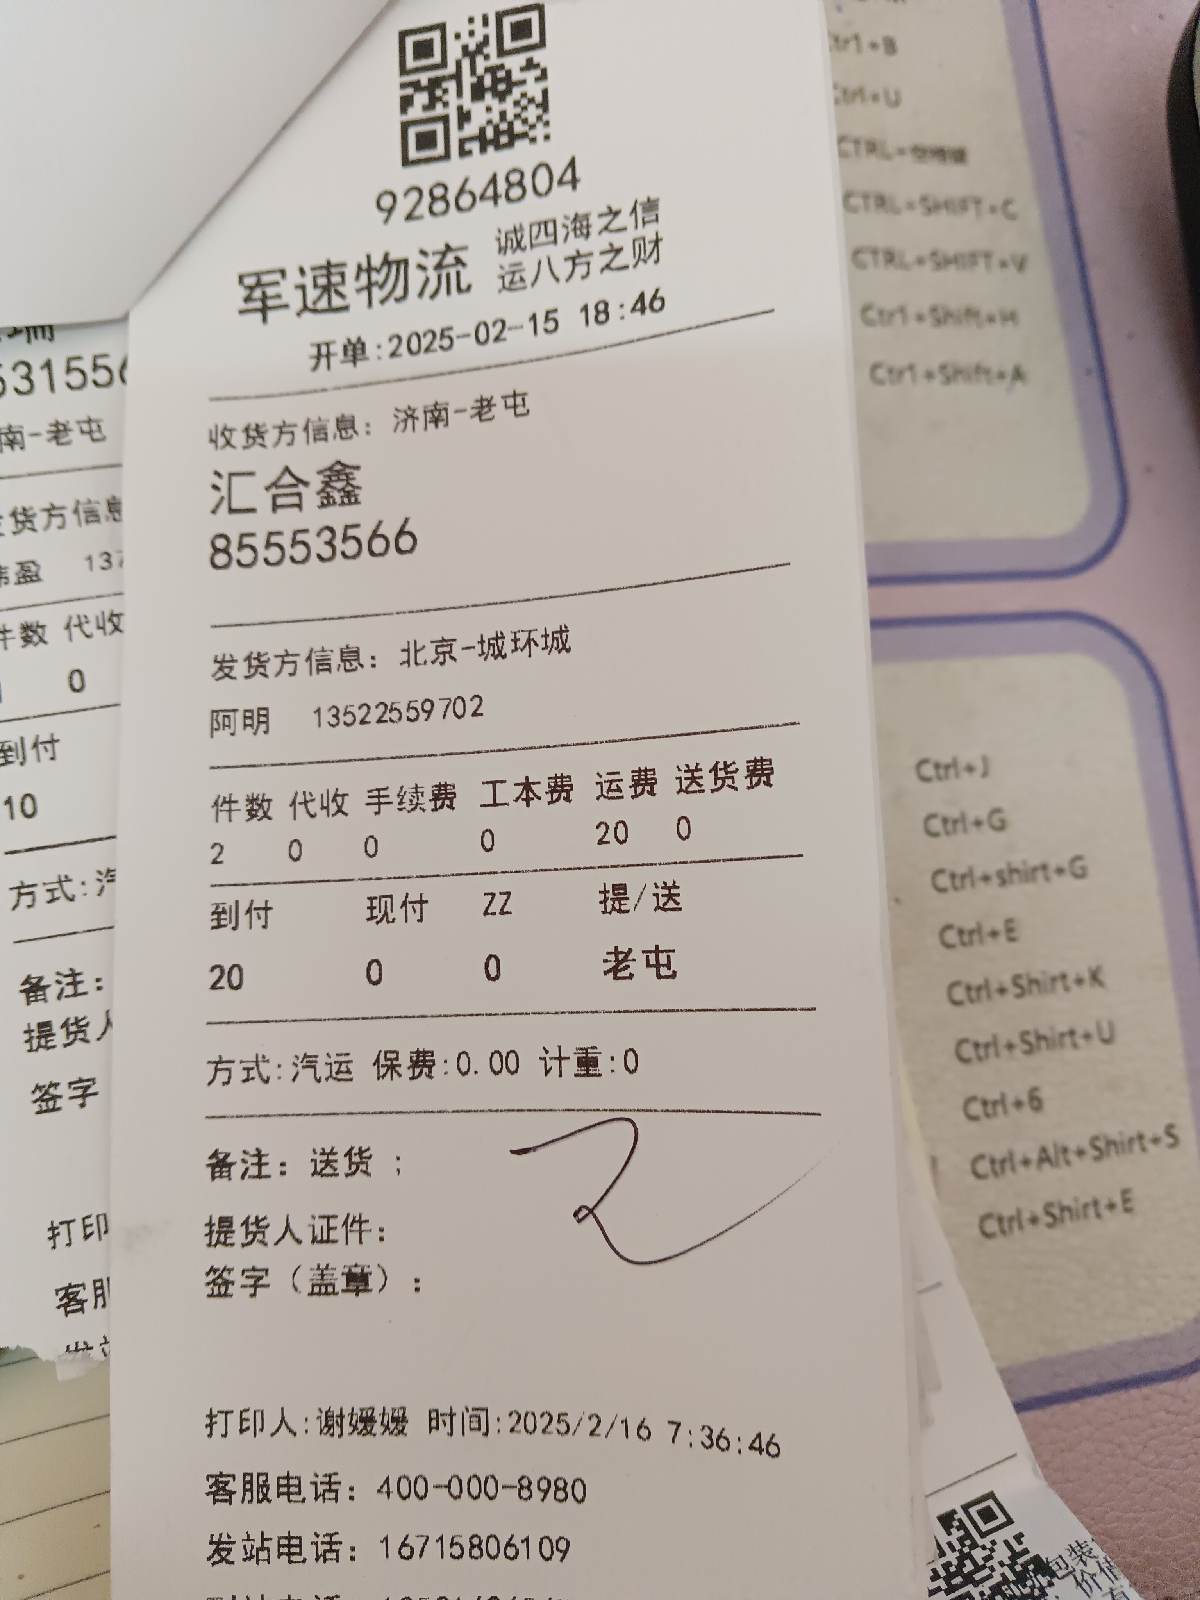 92864804
军速物流 诚四海之信
运八方之财
开单:2025-02-15 18:46
收货方信息: 济南-老屯
汇合鑫
85553566
发货方信息: 北京-城环城
阿明 13522559702
件数 代收 手续费 工本费 运费 送货费
2 0 0 0 20 0
到付 现付 ZZ 提/送
20 0 0 老屯
方式:汽运 保费:0.00 计重:0
备注: 送货 ;
提货人证件:
签字（盖章）:
打印人:谢媛媛 时间:2025/2/16 7:36:46
客服电话: 400-000-8980
发站电话: 16715806109
南-老屯
货方信息
盈 137
件数 代收
0
到付
10
方式:汽
备注:
提货人
签字
打印
客服
Ctrl+U
CTRL+SHIFT+C
CTRL+SHIFT+V
Ctr1+Shift+H
Ctr1+Shift+A
Ctrl+J
Ctrl+G
Ctrl+shirt+G
Ctrl+E
Ctrl+Shirt+K
Ctrl+Shirt+U
Ctrl+6
Ctrl+Alt+Shirt+S
Ctrl+Shirt+E
包装
价值
有